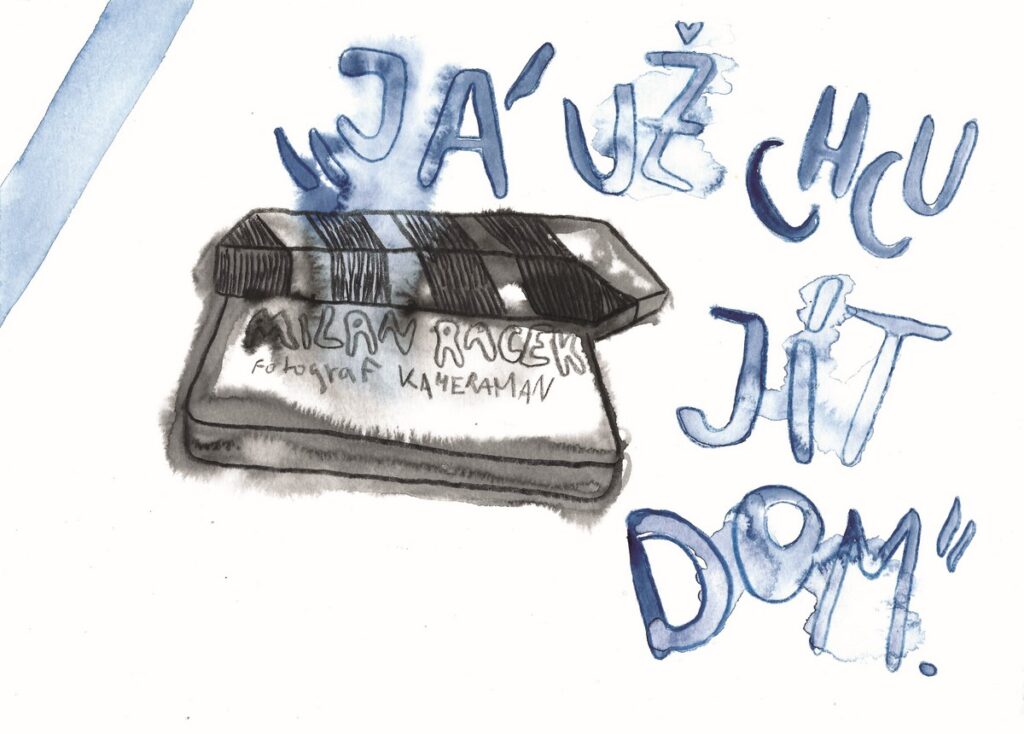 „JÁ UŽ CHCU
JÍT
DOM."
MILAN RACEK
fotograf KAMERAMAN